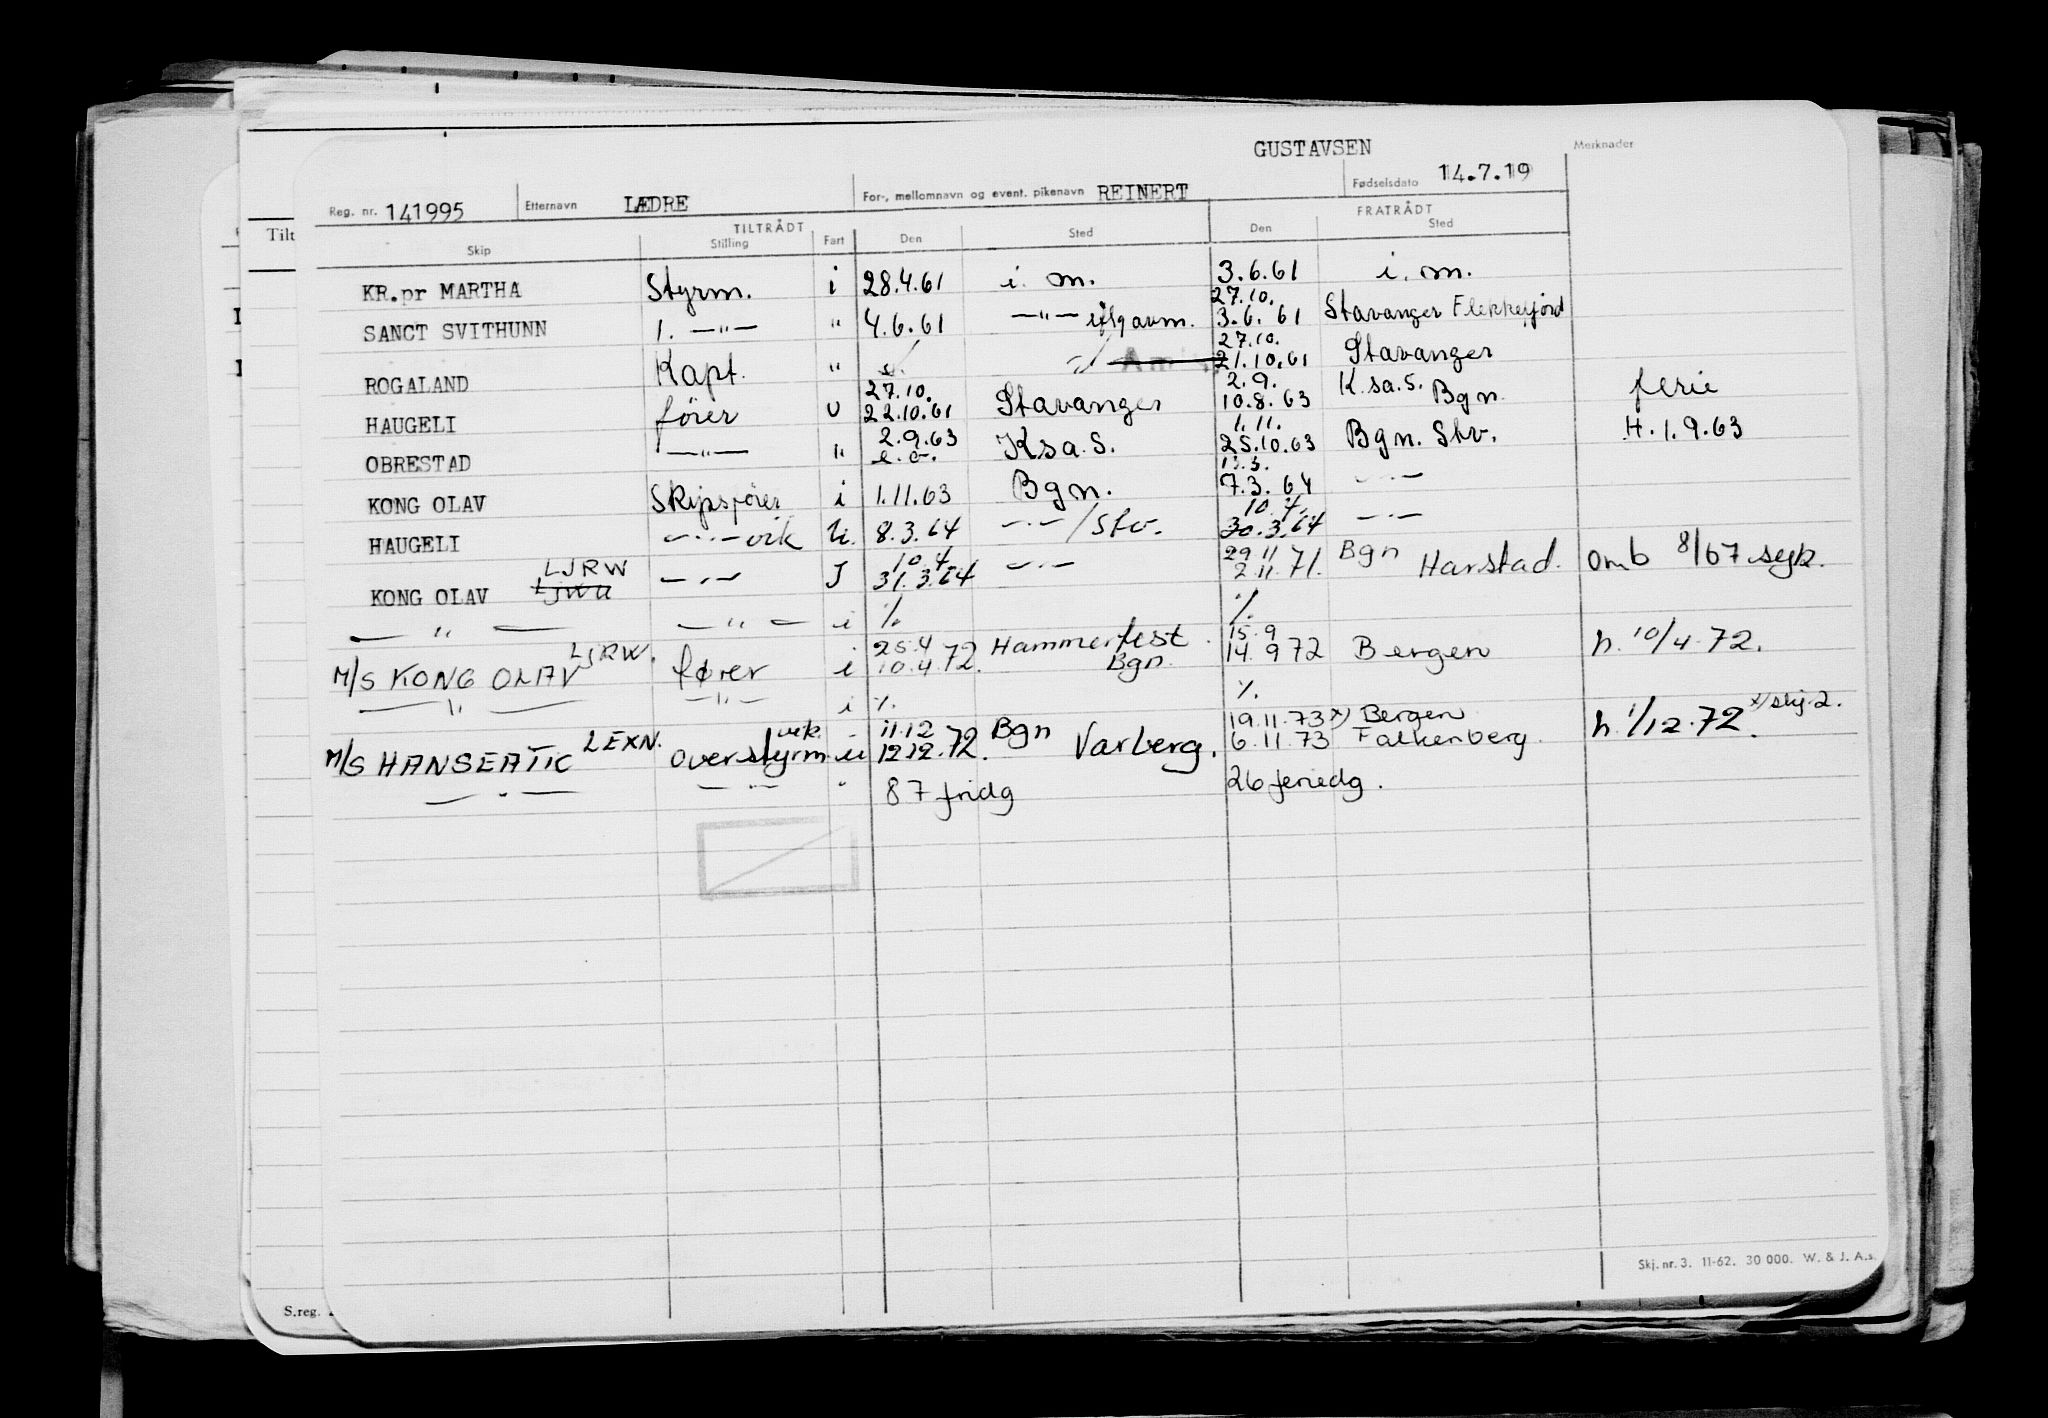 GUSTAVSEN Merknader
Reg. nr. 141995 Etternavn LÆDRE For-, mellomnavn og event. pikenavn REINERT Fødselsdato 14.7.19
Tilt TILTRÅDT FRATRÅDT
Skip Stilling Fart Den Sted Den Sted
KR.pr MARTHA Styrm. i 28.4.61 i. m. 3.6.61 i. m.
27.10.
SANCT SVITHUNN 1. —"— " 4.6.61 —"— 3.6.61 Stavanger Flekkefjord
27.10.
ROGALAND Kapt. " 21.10.61 Stavanger
27.10. 2.9.
HAUGELI fører U 22.10.61 Stavanger 10.8.63 K.sa.S. Bgn. ferie
2.9.63 1.11.
OBRESTAD —"— " Ksa.S. 25.10.63 Bgn. Stv. H.1.9.63
KONG OLAV Skipsfører i 1.11.63 Bgn. 7.3.64 —"—
10.4.
HAUGELI —"— vik U. 8.3.64 —"—/Stv. 30.3.64 —"—
LJRW 10.4. 29.11
KONG OLAV LJWU —"— J 31.3.64 —"— 2.11.71. Bgn Harstad. Omb 8/67 syk.
—"— —"— i %. %.
LJRW. 25.4 Hammerfest. 15.9
M/S KONG OLAV fører i 10.4.72. Bgn. 14.9.72 Bergen h. 10/4-72.
—"— —"— i %. %.
LEXN. vik. 11.12 Bgn 19.11.73 x) Bergen x) skj.2.
M/S HANSEATIC overstyrm. u 12.12.72. Varberg. 6.11.73 Falkenberg. h. 1/12-72.
—"— —"— " 87 fridg 26 feriedg.
Skj. nr. 3. 11-62. 30 000. W. & J. A.s.
S.reg.